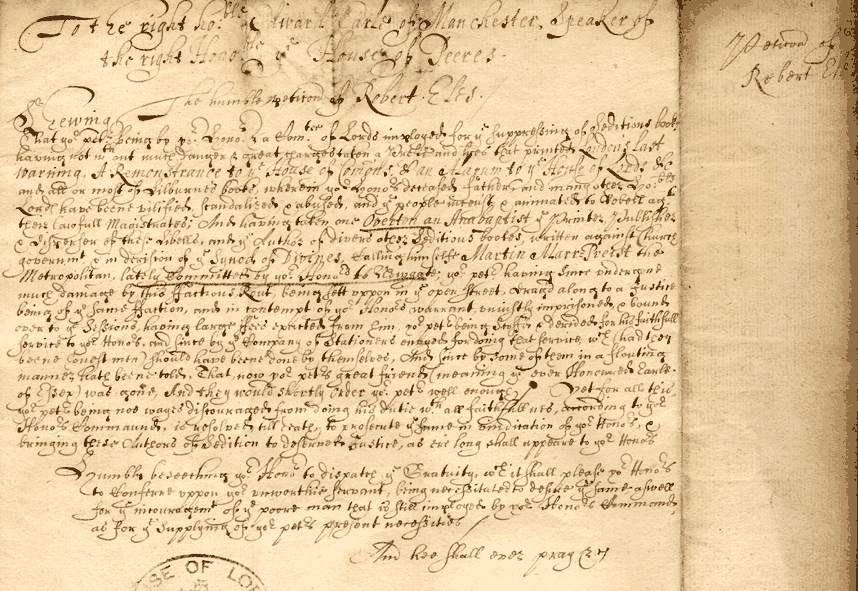 To the right hoble Edward Earle of Manchester, Speaker of
the right Honoble ye House of Peeres.
The humble peticon of Robert Eles.
Shewing
That yor petr being by yor Honors & a Comtee of Lords imployed for ye suppressing of seditious books
having not wthout much danger & great charges taken a Presse and that printed Londons Last
warning, A Remonstrance to ye House of Comons, & an Alarum to ye House of Lords &c
and all or most of Lilburnes books, wherein yor Honors deceased Father, and many other Hoble
Lords have beene vilified, scandalized & abused, and ye people incenst & animated to Rebell agt
their lawfull Magistrates; And having taken one Overton an Anabaptist ye Printer, Publisher
& disperser of these Libells, and ye Author of divers other seditious bookes, written against Church
governmt, & in derision of ye Synod of Divines, Calling himselfe Martin Marr-Preist the
Metropolitan, lately Committed by yor Honors to Newgate; yor petr having since undergone
much damage by this ffactious Rout, being sett uppon in ye open street, dragd along to a Justice
being of ye same ffaction, and in contempt of yor Honors warrant, unjustly imprisoned, & bound
over to ye Sessions, having large ffees extorted from him, yor petr being scoft & derided for his faithfull
service to yor Honors, and since by ye Company of Stationers envyed for doing that service, wch (had they
beene honest men) should have beene done by themselves, And since by some of them in a flouting
manner hath beene told, That now yor petrs great friend (meaning ye ever Honoured Earle
of Essex) was gone, And they would shortly order yor petr well enough. Yet for all this
yor petr being noe wayes discouraged from doing his dutie wth all faithfullnes, according to yor
Honors Commaunds, is resolved till death, to prosecute ye same in vindication of yor Honors, &
bringing these Authors of Sedition to deserved Justice, as ere long shall appeare to yor Honors
Humbly beseeching yor Honors to dispatch ye Gratuity, wch it shall please yor Honors
to Conferre uppon yor unworthie servant, being necessitated to desire ye same aswell
for ye incouragemt of ye poore man that is still imployed by yor Honors Commands,
as for ye supplying of yor petrs present necessities
And hee shall ever pray &c
Peticon of
Robert Eles
HOUSE OF LO